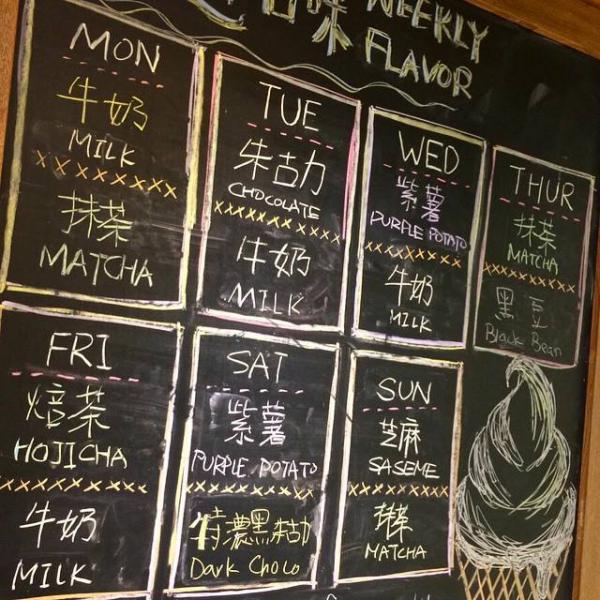 味 WEEKLY
FLAVOR
MON
牛奶
MILK
抹茶
MATCHA
TUE
朱古力
CHOCOLATE
牛奶
MILK
WED
紫薯
PURPLE POTATO
牛奶
MILK
THUR
抹茶
MATCHA
黑豆
Black Bean
FRI
焙茶
HOJICHA
牛奶
MILK
SAT
紫薯
PURPLE POTATO
特濃黑朱古力
Dark Choco
SUN
芝麻
SASEME
抹茶
MATCHA